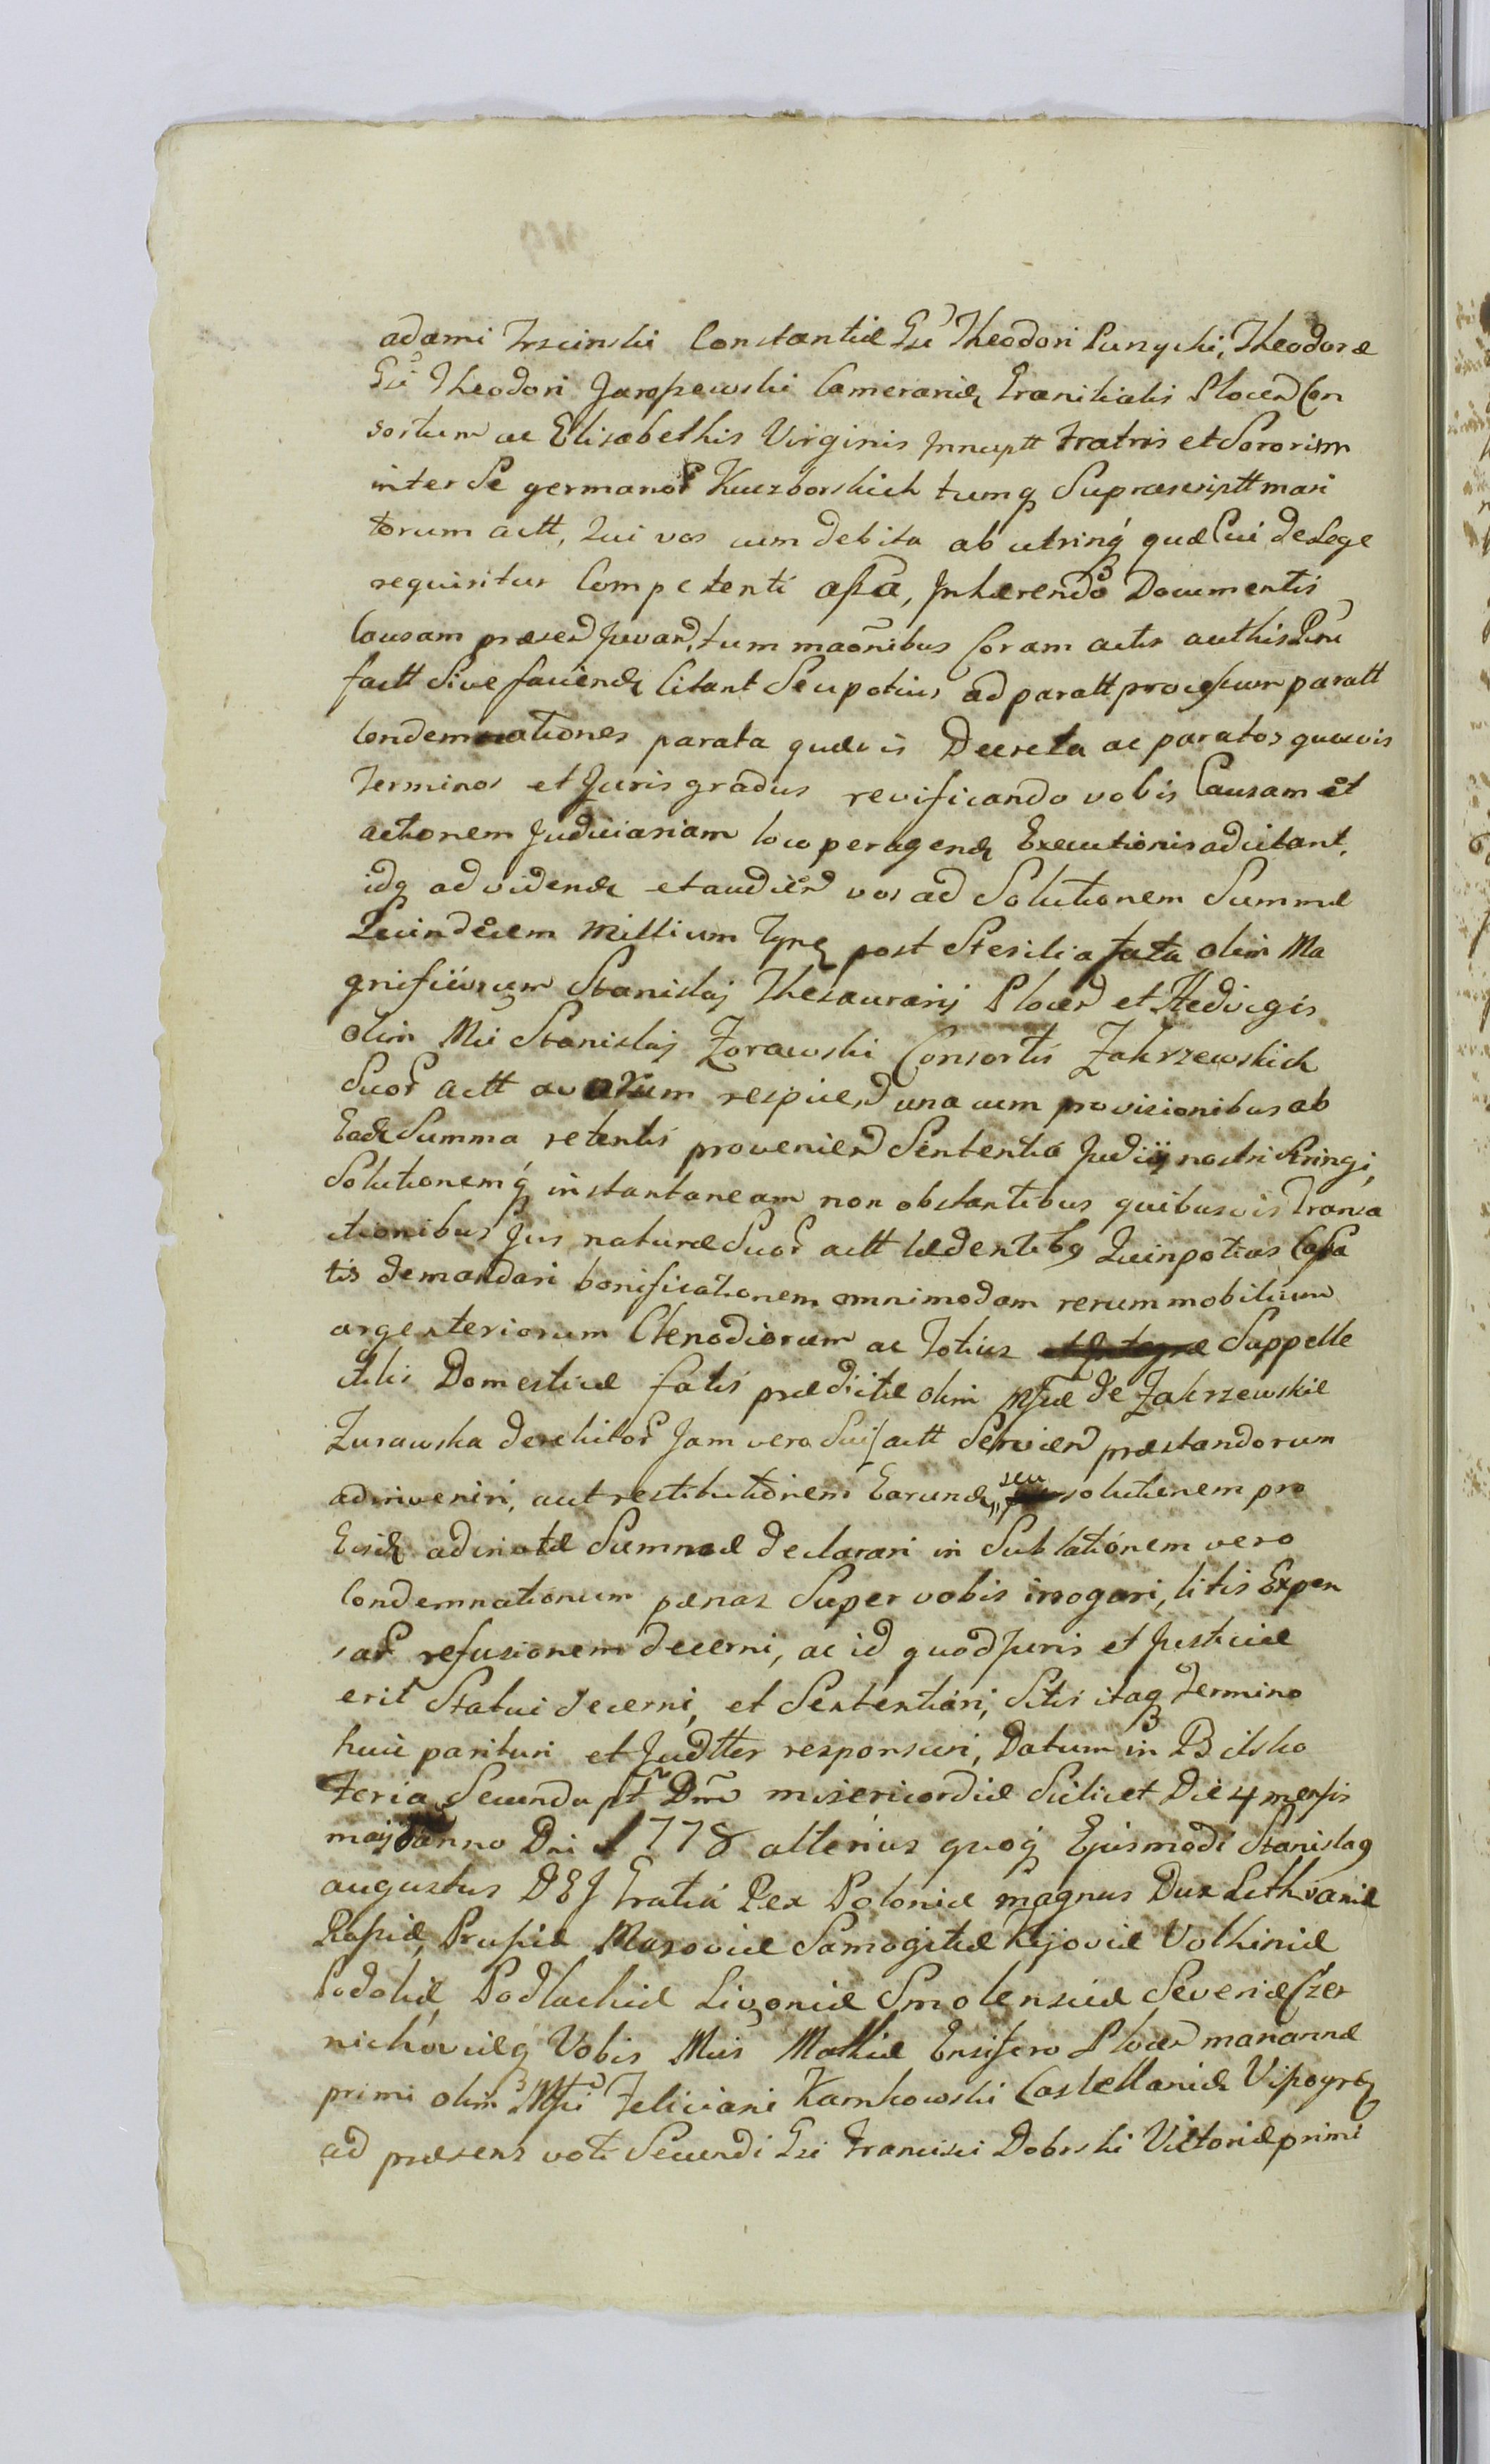 adami Trzcinski Constantiæ Gsi Theodori Punycki, Theodoræ
Gsi Theodori Jaroszewski Camerariđ Granitialis Plocen Con
sortum ac Elisabethis Virginis Innuptt Fratris et Sororum
inter Se germanor Kuczborskich tumq Supræscriptt mari
torum actt, Qui vos cum debita ab utrinq quæ Cui de Lege
requiritur Competenti assa, Inhærendo Documentis
Causam præsen Juvan, tum maonibus Coram actis authis
factt Sive faciend Citant Seu potius ad paratt processum paratt
Condemnationes parata quævis Decreta ac paratos quavis
Terminos et Juris gradus revificando vobis Causam et
actionem Judiciariam loco peragend Executionis adcitant,
idq ad videnđ et audien vos ad Solutionem Summæ
Quindecem Millium Tynf post Sterilia fata olim Ma
gnificorum Stanislaj Thesaurarij Plocen et Hedvigis
olim Mci Stanislaj Zorawski Consortis Zakrzewskich
Suor actt avorum respicien una cum provisionibus ab
Eadđ Summa retentis provenien Sententia Judicij nostri stringi,
Solutionemq instantaneam non obstantibus quibusvis Transa
ctionibus Jus naturæ Suor actt lædentibq Quinpotius Cassa
tis demandari bonificationem omnimodam rerum mobilium
argenteriorum Clenodiorum ac Totius Suppelle
ctilis Domesticæ fatis prædictæ olim Mfcæ de Zakrzewskie
Zurawska derelictor Jam vero Suis actt Servien præstandorum
adinveniri, aut restitutionem Earundđ seu solutionem pro
Eisđ adinotæ Summæ declarari in Sublationem vero
Condemnationum pænas Super vobis irrogari, litis Expen
sar refusionem decerni, ac id quod Juris et Justiciæ
erit Statui decerni, et Sententiari, Sitis itaq Termino
huic parituri et Judtter responsuri, Datum in Bilsko
Feria Secunda pt Dm misericordiæ Scilicet Die 4 mensis
maj anno Dni 1778 alterius quoq Ejusmodi Stanislaq
augustus DEJ Gratia Rex Poloniæ magnus Dux Lithvaniæ
Rußiæ, Prußiæ Mazoviæ Samogitiæ Kijoviæ Volhiniæ
Podoliæ, Podlachiæ Livoniæ Smolensciæ Severiæ Czer
nichoviæq Vobis Mcis Mathiæ Ensifero Plocen mariannæ
primi olim Mfci Feliciani Karnkowski Castellanidæ Vißogrđ
ad præsens voti Secundi Gsi Francisci Dobrski Victoriæ primi